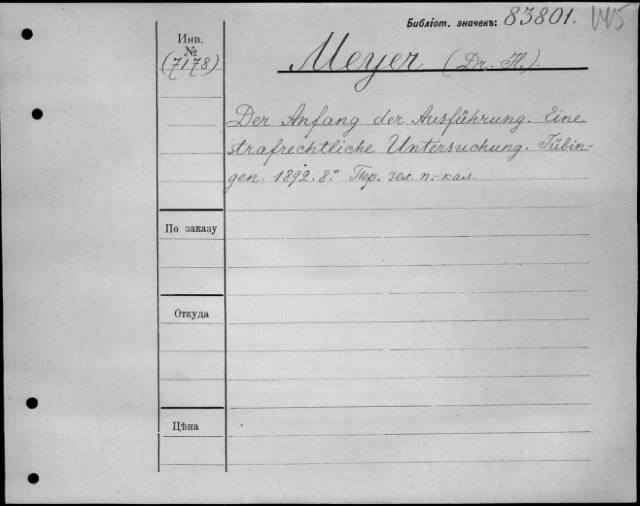 Библіот. значекъ: 83801.
Инв.
№
(7178)
Meyer (Dr. H.)
Der Anfang der Ausführung. Eine
strafrechtliche Untersuchung. Tübin-
gen. 1892. 8.° Пер. зел. п.-кал.
По заказу
Откуда
Цѣна